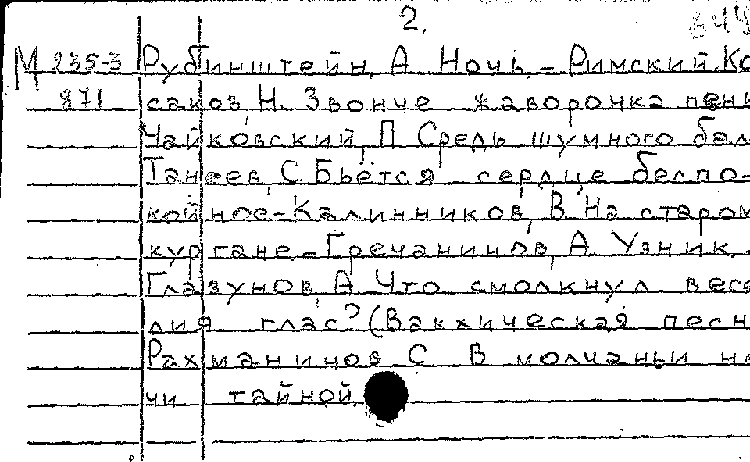 2.
М 235-3 Рубинштейн, А Ночь. – Римский-Ко
871 саков, Н. Звонче жаворонка пень
Чайковский, П Средь шумного бал
Танеев, С Бьётся сердце беспо-
койное – Калинников, В На старом
кургане – Гречанинов, А Узник. –
Глазунов, А Что смолкнул весе
лия глас? (Вакхическая песн
Рахманинов С В молчаньи но
чи тайной